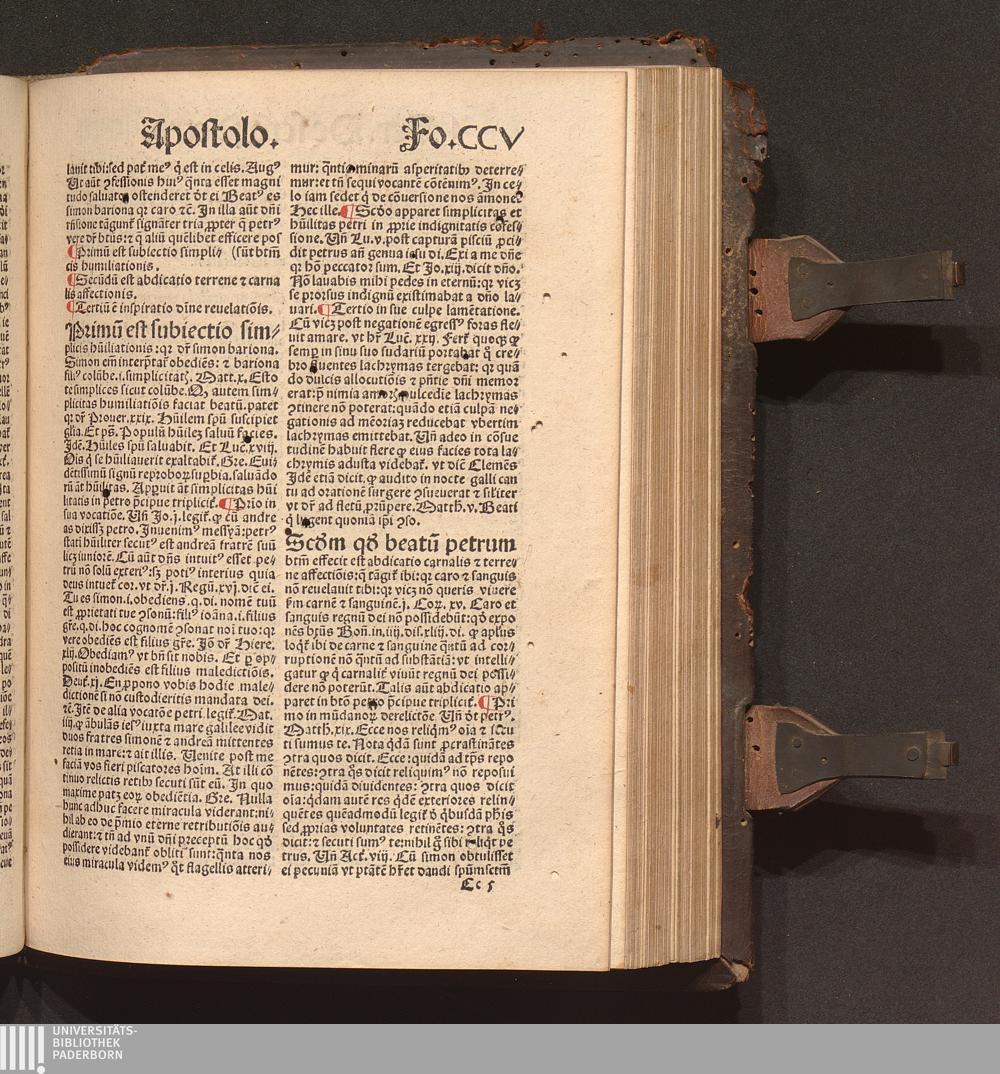 Apostolo. Fo.CCV
lauit tibi:sed pat̃ meꝰ q̇ est in celis. Augꝰ
Ut aũt ꝯfessionis huiꝰ q̃nta esset magni
tudo saluator ostenderet dt̃ ei Beatꝰ es
simon bariona qꝛ caro ⁊c̃. In illa aũt dñi
rñsione tãgunt̃ signãter tria ꝓpter q̃ petrꝰ
vere dr̃ btũs:⁊ q̃ aliũ quẽlibet efficere pos
¶Primũ est subiectio simpli⸗ (sũt btm̃
cis humiliationis.
¶Secũdũ est abdicatio terrene ⁊ carna
lis affectionis.
¶Tertiũ ẽ inspiratio diĩne reuelatiõis.
Primũ est subiectio sim⸗
plicis hũiliationis:qꝛ dr̃ simon bariona.
Simon em̃ interp̃tat̃ obediẽs: ⁊ bariona
filiꝰ colũbe.i.simplicitatꝭ. Matt.x. Esto
te simplices sicut colũbe. Qꝫ autem sim⸗
plicitas humiliatiõis faciat beatũ.patet
qꝛ dr̃ Prouer.xxix. Hũilem spũ suscipiet
glĩa. Et ps̃. Populũ hũileꝫ saluũ facies.
Idẽ. Hũiles spũ saluabit. Et Luc̃.xviij.
Ois q̇ se hũiliauerit exaltabit̃. Gre. Eui⸗
dẽtissimũ signũ reproboꝝ suꝑbia. saluãdo
rũ aũt hũilitas. Apparuit aũt simplicitas hũi
litatis in petro p̃cipue triplicit̃. ¶Prĩo in
sua vocatiõe. Uñ Jo.j.legit̃. ꝙ cũ andre
as dixissꝫ petro. Inuenimꝰ messyã:petrꝰ
stati hũiliter secutꝰ est andreã fratrẽ suũ
licꝫ iuniorẽ. Cũ aũt dñs intuitꝰ esset pe⸗
trũ nõ solũ exteriꝰ:sꝫ potiꝰ interius quia
deus intuet̃ cor. vt dr̃.j. Regũ.xvj.dic̃ ei.
Tu es simon.i.obediens.q.di. nomẽ tuũ
est ꝓprietati tue ꝯsonũ:filiꝰ ioãna.i.filius
gr̃e.q.di.hoc cognomẽ ꝯsonat noĩ tuo:qꝛ
vere obediẽs est filius gr̃e. Jõ dr̃ Hiere.
xlij. Obediamꝰ vt bñ sit nobis. Et ꝑ op⸗
positũ inobediẽs est filius maledictiõis.
Deut̃.xj. En ꝓpono vobis hodie male⸗
dictionẽ si nõ custodieritis mandata dei.
⁊c̃. Itẽ de alia vocatõe petri legit̃. Mat.
iiij.ꝙ ãbulãs iesꝰ iuxta mare galilee vidit
duos fratres simonẽ ⁊ andreã mittentes
retia in mare:⁊ ait illis. Uenite post me
faciã vos fieri piscatores hoĩm. At illi cõ
tinuo relictis retibꝰ secuti sũt eũ. In quo
maxime patꝫ eoꝝ obediẽtia. Gre. Nulla
hunc adhuc facere miracula viderant:ni⸗
hil ab eo de p̃mio eterne retributiõis au⸗
dierant:⁊ tñ ad vnũ dñi p̃ceptũ hoc qḋ
possidere videbant̃ obliti sunt:q̃nta nos
eius miracula videmꝰ q̃t flagellis atteri⸗
mur: q̃nti minarũ asperitatibꝰ deterre⸗
mur:et tñ sequi vocantẽ cõtẽnimꝰ. In ce⸗
lo iam sedet q̇ de cõuersione nos amone.
Hec ille. ¶Scḋo apparet simplicitas et
hũilitas petri in ꝓprie indignitatis cõfes⸗
sione. Uñ Lu.v.post capturã pisciũ ꝓci⸗
dit petrus añ genua iesu di. Exi a me dñe
qꝛ hõ peccator sum. Et Jo.xiij.dicit dño.
Nõ lauabis mihi pedes in eternũ:qꝛ vicꝫ
se prorsus indignũ existimabat a dño la⸗
uari. ¶Tertio in sue culpe lamẽtatione.
Cũ vicꝫ post negationẽ egressꝰ foras fle⸗
uit amare. vt hr̃ Luc̃.xxij. Fert̃ quoqꝫ ꝙ
semꝑ in sinu suo sudariũ portabat q̊ cre⸗
bro fluentes lachrymas tergebat: qꝛ quã
do dulcis allocutiõis ⁊ pñtie dñi memor
erat:p̃ nimia amoris dulcedie lachrymas
ꝯtinere nõ poterat:quãdo etiã culpã ne⸗
gationis ad mẽoriaꝫ reducebat vbertim
lachrymas emittebat. Uñ adeo in cõsue
tudinẽ habuit flere ꝙ eius facies tota la⸗
chrymis adusta videbat̃. vt dic̃ Clemẽs
Idẽ etiã dicit.ꝙ audito in nocte galli can
tu ad orationẽ surgere ꝯsueuerat ⁊ sil̃iter
vt dr̃ ad fletũ ꝓrũpere. Matth.v. Beati
q̇ lugent quoniã ip̃i ꝯso.
Scḋm qḋ beatũ petrum
btm̃ effecit est abdicatio carnalis ⁊ terre⸗
ne affectiõis:q̃ tãgit̃ ibi:qꝛ caro ⁊ sanguis
nõ reuelauit tibi:qꝛ vicꝫ nõ queris viuere
ẜm carnẽ ⁊ sanguinẽ.j. Coꝝ. xv. Caro et
sanguis regnũ dei nõ possidebũt:qḋ expo
nẽs btũs Boñ.in.iiij.dis.xliij.di. ꝙ apĺus
loqt̃ ibi de carne ⁊ sanguine q̃ntũ ad cor⸗
ruptionẽ nõ q̃ntũ ad substãtiã:vt intelli⸗
gatur ꝙ q̇ carnalit̃ viuũt regnũ dei possi⸗
dere nõ poterũt. Talis aũt abdicatio ap⸗
paret in btõ petro p̃cipue triplicit̃. ¶Pri
mo in mũdanoꝝ derelictõe. Uñ dt̃ petrꝰ.
Matth.xix. Ecce nos reliqm̃ꝰ oĩa ⁊ secu
ti sumus te. Nota q̇dã sunt ꝓcrastinãtes
ꝯtra quos dicit. Ecce:quidã ad tp̃s repo
nẽtes:ꝯtra q̊s dicit reliquimꝰ nõ reposui
mus:quidã diuidentes: ꝯtra quos dicit
oĩa:q̇dam autẽ res q̇dẽ exteriores relin⸗
quẽtes quẽadmodũ legit̃ d̃ q̇busdã ph̃is
sed ꝓprias voluntates retinẽtes: ꝯtra q̊s
dicit:⁊ secuti sumꝰ te:nihil g̃ sibi reliqt̃ pe
trus. Uñ Act̃. viij. Cũ simon obtulisset
ei pecuniã vt ptãtẽ hr̃et dandi spũm sctm̃
Cc 5
UNIVERSITÄTS-
BIBLIOTHEK
PADERBORN